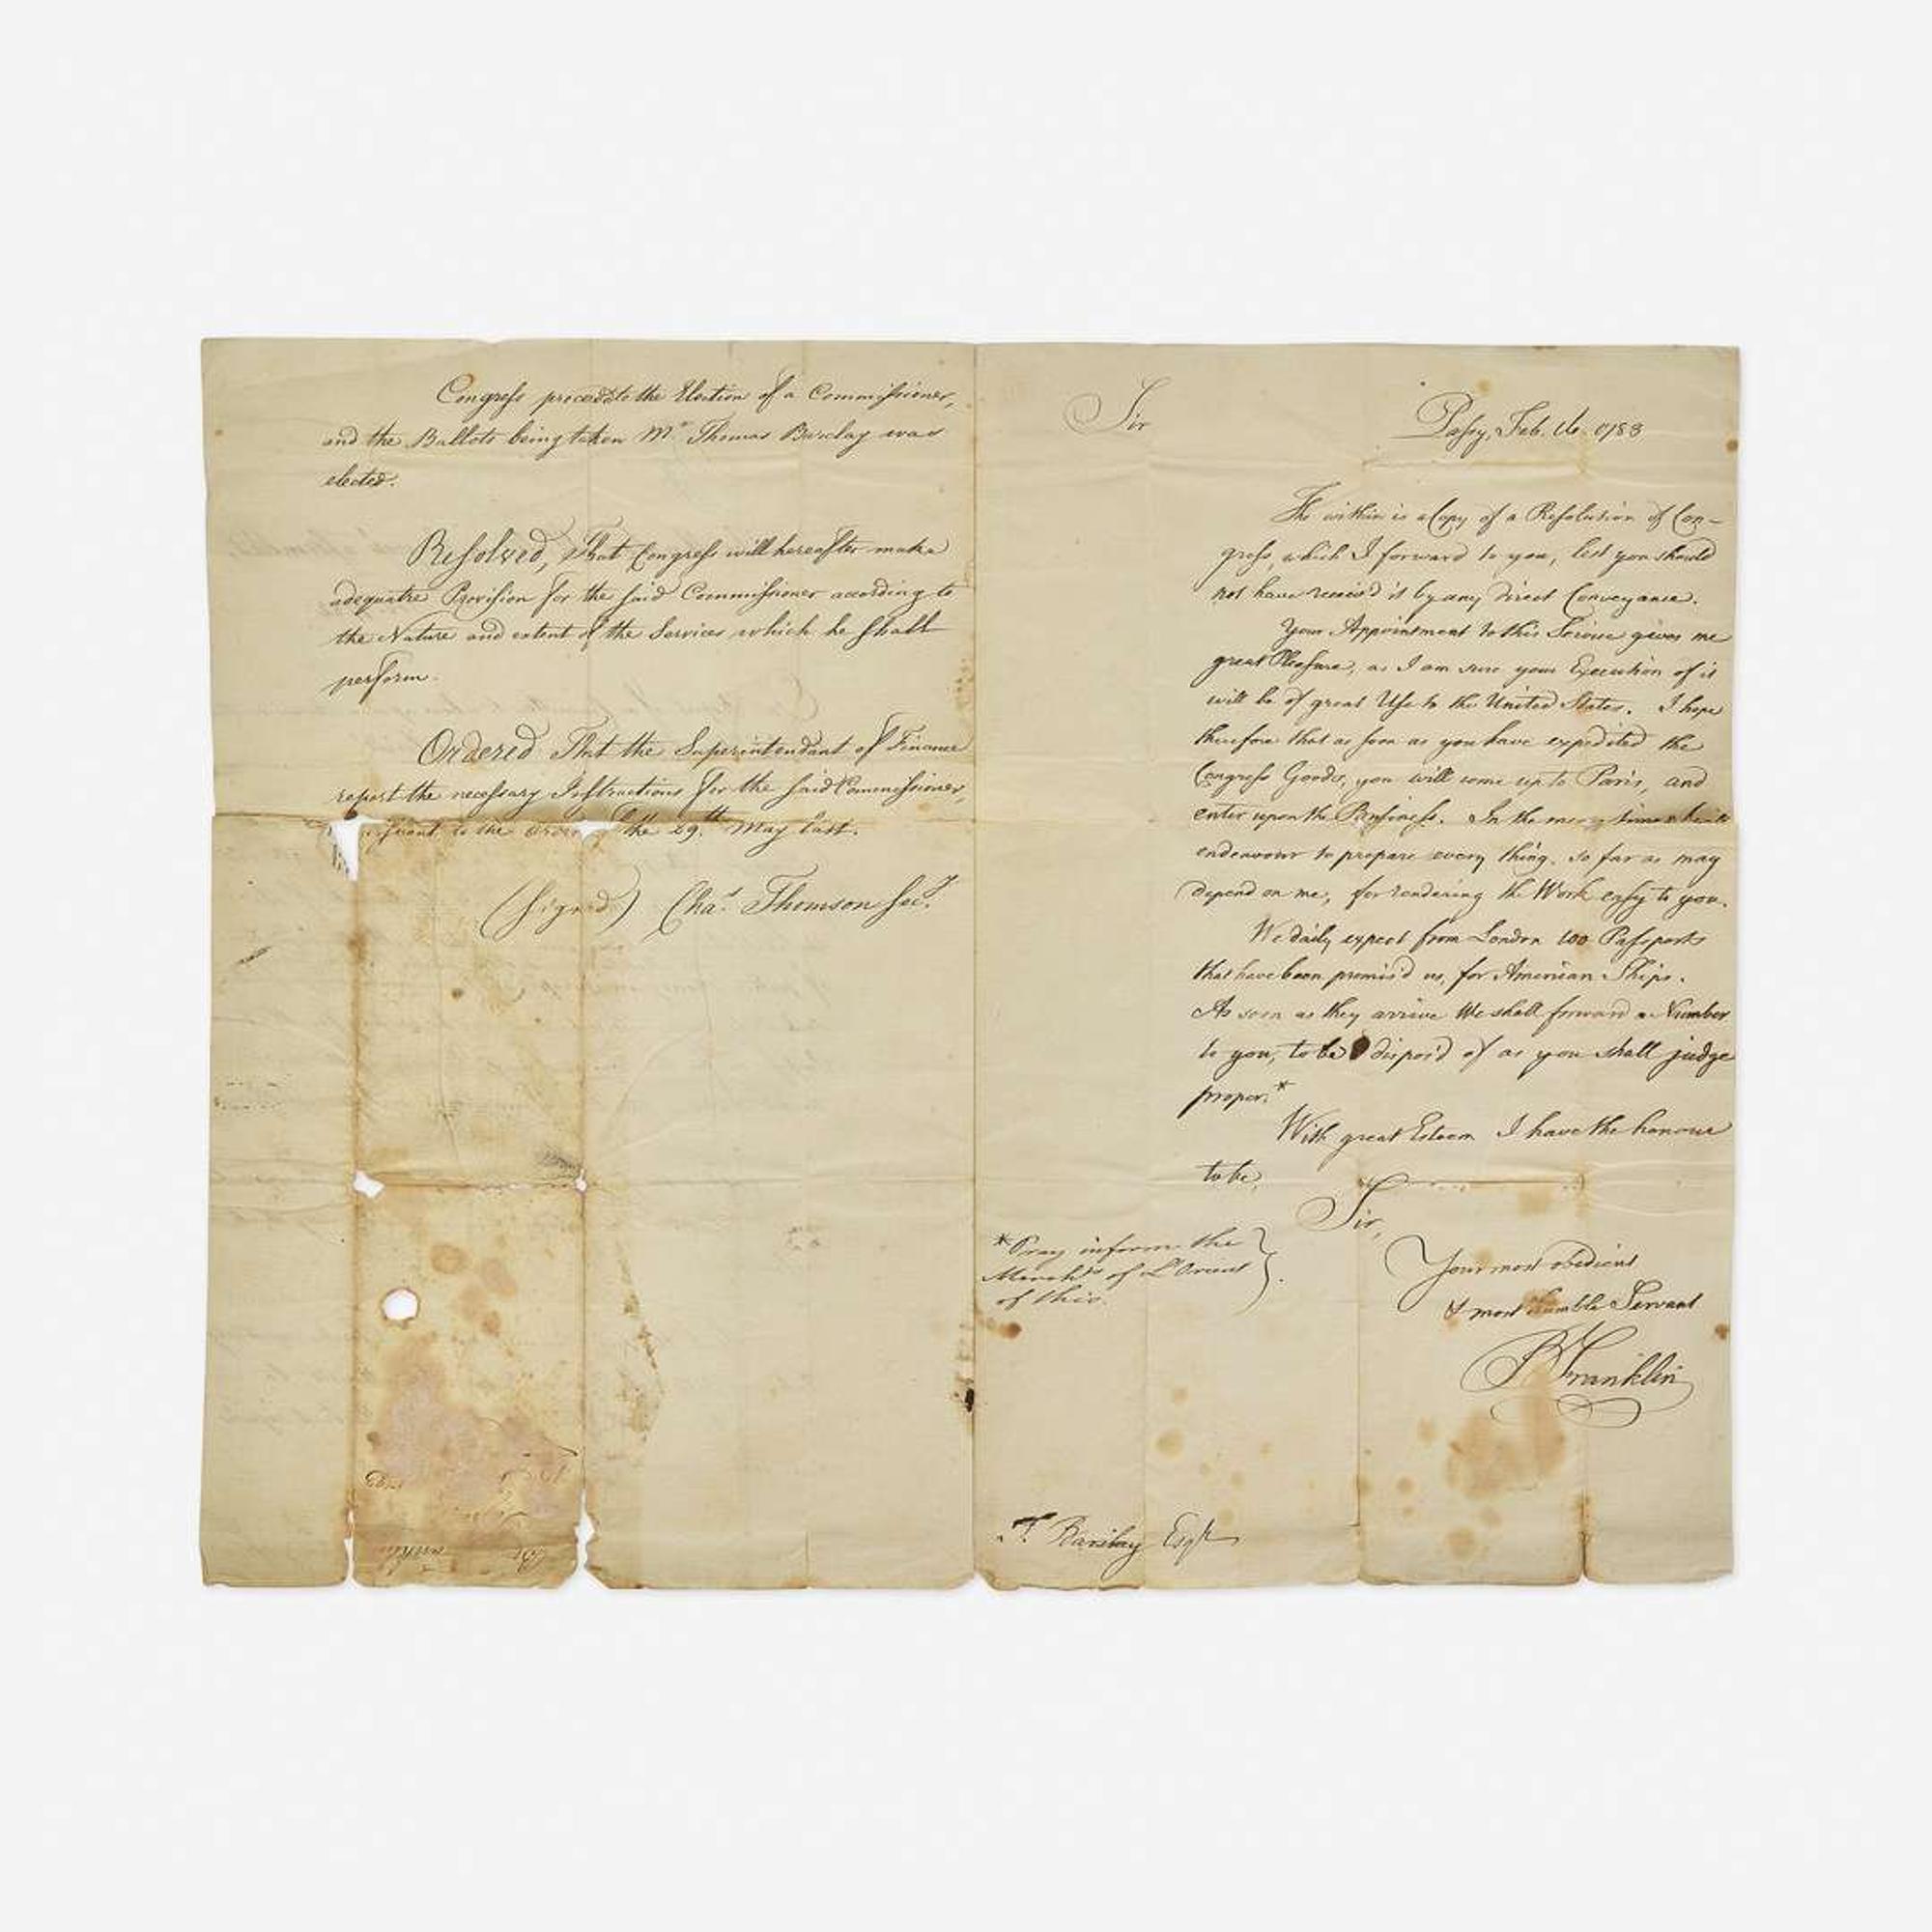 Congress proceeded to the Election of a Commissioner,
and the Ballots being taken Mr. Thomas Barclay was
elected.
Resolved, That Congress will hereafter make
adequate Provision for the said Commissioner according to
the Nature and extent of the Services which he shall
perform.
Ordered That the Superintendant of Finance
report the necessary Instructions for the said Commissioner,
to the Order the 29th May last.
(Signed) Chas. Thomson Secy.
Sir
Passy, Feb. 16. 1783
The within is a Copy of a Resolution of Con-
gress, which I forward to you, lest you should
not have receiv'd it by any direct Conveyance.
Your Appointment to this Service gives me
great Pleasure, as I am sure your Execution of it
will be of great Use to the United States. I hope
therefore that as soon as you have expedited the
Congress Goods, you will come up to Paris, and
enter upon the Business. In the mean time I will
endeavour to prepare every thing, so far as may
depend on me, for rendering the Work easy to you.
We daily expect from London 100 Passports
that have been promis'd us, for American Ships.
As soon as they arrive We shall forward a Number
to you, to be dispos'd of as you shall judge
proper.*
With great Esteem I have the honour
to be,
Sir,
*Pray inform the
Merchts of L'Orient
of this.
Your most obedient
& most humble Servant
B Franklin
T. Barclay Esqr